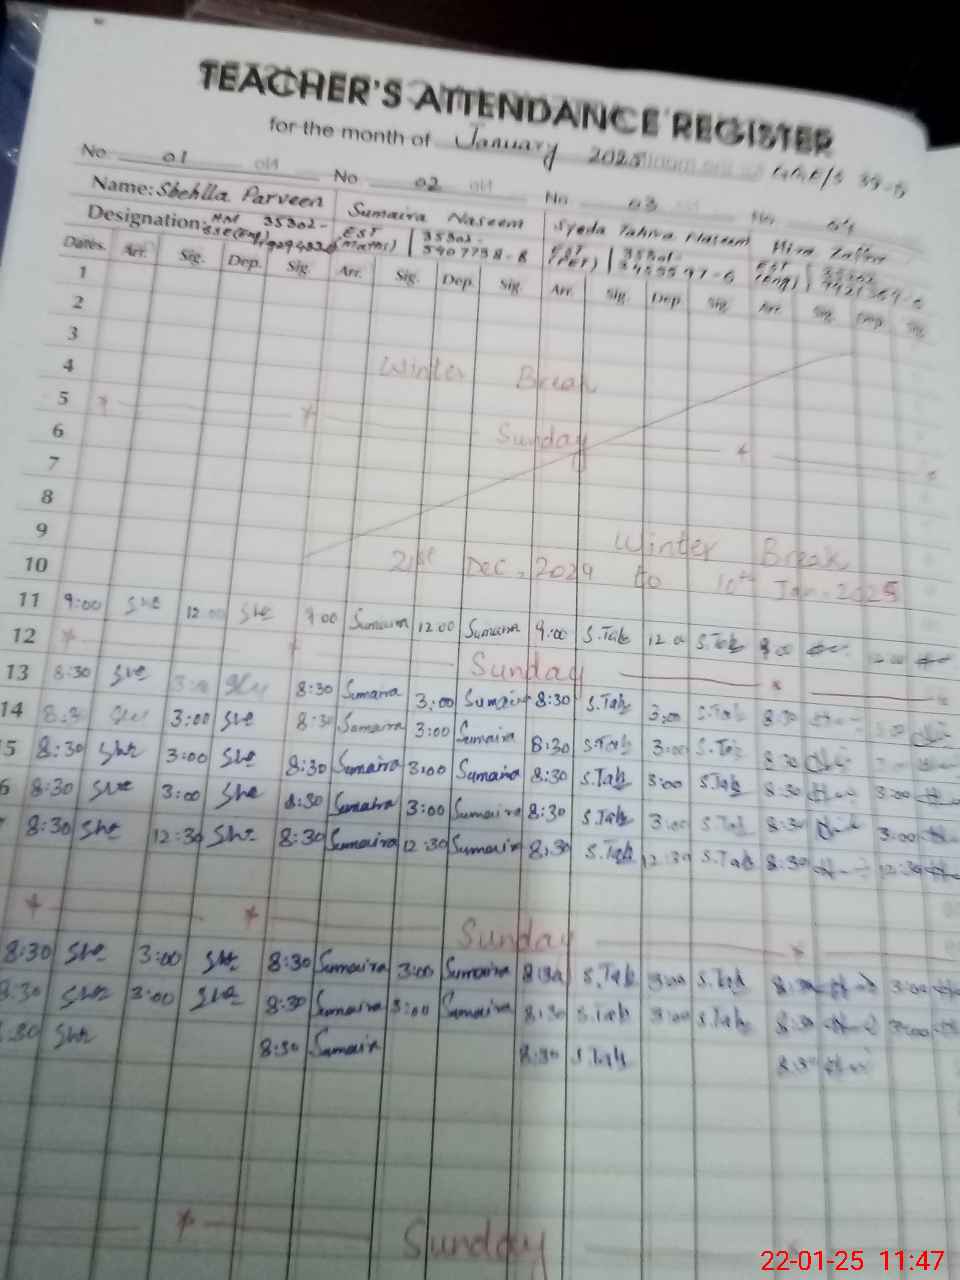 TEACHER'S ATTENDANCE REGISTER
for the month of January 2025
No 01 No 02 No 03 No
Name: Shehlla Parveen Sumaira Naseem Syeda Tahira Naseem Hira
Designation: SSE(Eng) 35302- EST Maths) 35302- 5407758-8 EST 35301- EST (Eng)
Dates. Arr. Sig. Dep. Sig. Arr. Sig. Dep. Sig. Arr. Sig. Dep. Sig. Arr. Sig. Dep. Sig.
1
2
3
4 Winter Break
5 Sunday
6
7
8
9 Winter Break
10 21st Dec, 2024 to 10th Jan-2025
11 9:00 She 12:00 She 9:00 Sumaira 12:00 Sumaira 9:00 S.Tah 12:00 S.Tah 9:00
12 Sunday
13 8:30 She 3:00 She 8:30 Sumaira 3:00 Sumaira 8:30 S.Tah 3:00 S.Tah 8:30 3:00
14 8:30 She 3:00 She 8:30 Sumaira 3:00 Sumaira 8:30 S.Tah 3:00 S.Tah 8:30
5 8:30 She 3:00 She 8:30 Sumaira 3:00 Sumaira 8:30 S.Tah 3:00 S.Tah 8:30 3:00
6 8:30 She 3:00 She 8:30 Sumaira 3:00 Sumaira 8:30 S.Tah 3:00 S.Tah 8:30 3:00
8:30 She 12:30 She 8:30 Sumaira 12:30 Sumaira 8:30 S.Tah 12:30 S.Tah 8:30 12:30
Sunday
8:30 She 3:00 She 8:30 Sumaira 3:00 Sumaira 8:30 S.Tah 3:00 S.Tah 8:30 3:00
8:30 She 3:00 She 8:30 Sumaira 3:00 Sumaira 8:30 S.Tah 3:00 S.Tah 8:30 3:00
:30 She 8:30 Sumair 8:30 S.Tah 8:30
Sunday
22-01-25 11:47